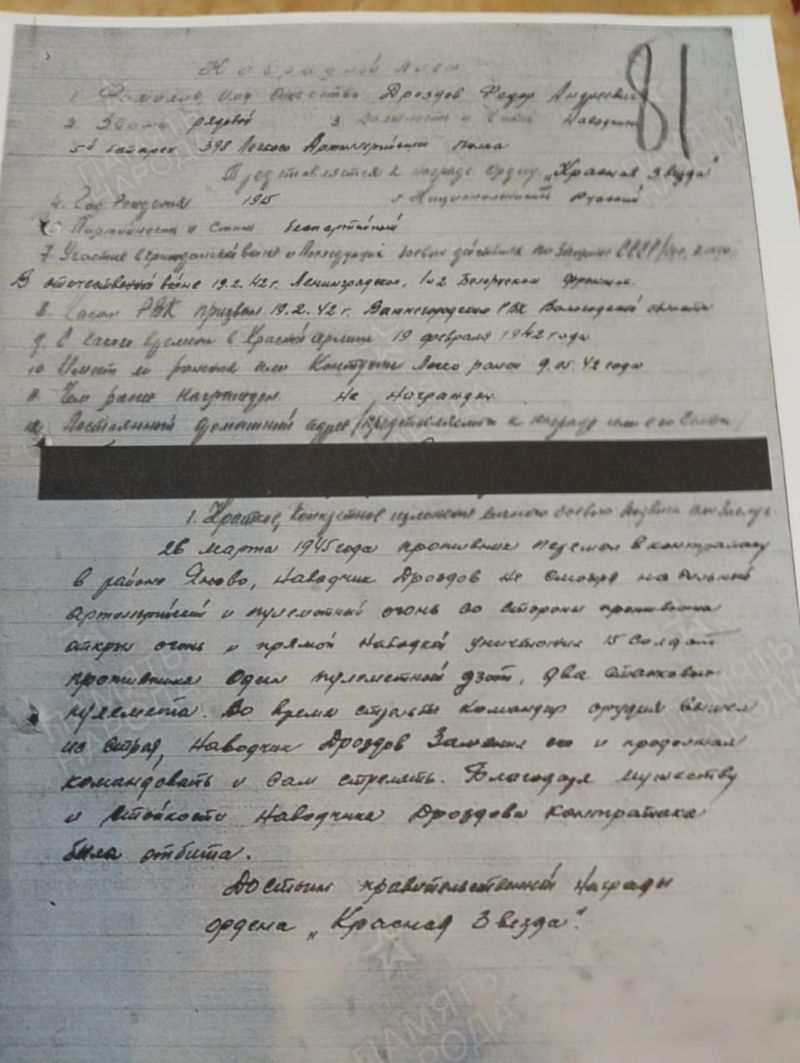 Наградной лист
81
1. Фамилия, имя Отчество Дроздов Федор Андреевич
2 Звание рядовой 3 Должность и часть Наводчик
5й батареи 398 Легкого Артиллерийского полка
Представляется к награде ордену „Красная Звезда"
4. Год Рождения 1915 5 Национальность Русский
6 Партийность и Стаж беспартийный
7. Участие в гражданской войне и Последующих боевых действиях по Защите СССР/где, когда
В отечественной войне 19.2.42 г. Ленинградском, 1 и 2 Белоруском фронтах
8. Каким РВК призван 19.2.42 г. РВК Вологодской области
9. С какого времени в Красной армии 19 февраля 1942 года
10 Имеет ли ранения или Контузии Легко ранен 9.05.42 года
11. Чем ранее Награжден Не Награжден
12. Постоянный домашний адрес /представляемого к награде или его Семьи/
1. Краткое, Конкретное изложение личного боевого подвига или Заслуг
26 марта 1945 года противник перешел в контратаку
в районе Яново, Наводчик Дроздов не смотря на сильный
артиллерийский и пулеметный огонь со стороны противника
открыл огонь и прямой Наводкой уничтожил 15 Солдат
противника Один пулеметный дзот, два станковых
пулемета. Во время стрельбы Командир орудия вышел
из строя, Наводчик Дроздов Заменил его и продолжал
командовать и сам стрелять. Благодаря мужеству
и Стойкости Наводчика Дроздова Контратака
была отбита.
Достоин правительственной Награды
ордена „Красная Звезда".
ПАМЯТЬ
НАРОДА